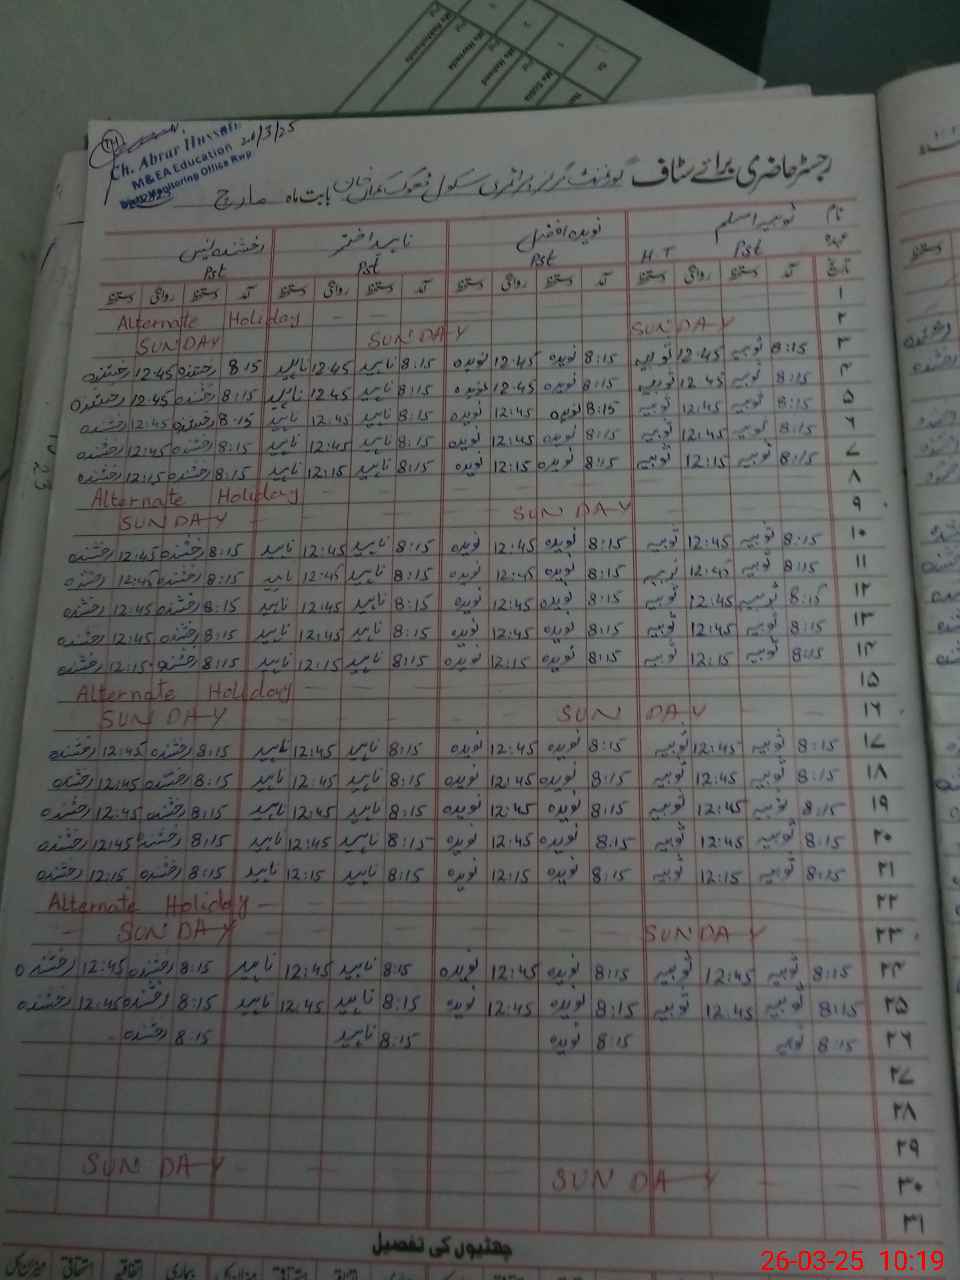 TH
Ch. Abrar Hussain
M&EA Education
Monitoring Office Rwp
26/3/25
رجسٹر حاضری برائے سٹاف گورنمنٹ گرلز پرائمری سکول بابت ماہ مارچ
نام ثوبیہ اسلم نویدہ افضل ناہید اختر رخشندہ
عہدہ Pst H.T Pst Pst Pst
تاریخ آمد دستخط روانگی دستخط آمد دستخط روانگی دستخط آمد دستخط روانگی دستخط آمد دستخط روانگی دستخط
۱ Alternate Holiday
۲ SUNDAY SUNDAY SUNDAY
۳ 8:15 ثوبیہ 12:45 ثوبیہ 8:15 نویدہ 12:45 نویدہ 8:15 ناہید 12:45 ناہید 8:15 رخشندہ 12:45 رخشندہ
۴ 8:15 ثوبیہ 12:45 ثوبیہ 8:15 نویدہ 12:45 نویدہ 8:15 ناہید 12:45 ناہید 8:15 رخشندہ 12:45 رخشندہ
۵ 8:15 ثوبیہ 12:45 ثوبیہ 8:15 نویدہ 12:45 نویدہ 8:15 ناہید 12:45 ناہید 8:15 رخشندہ 12:45 رخشندہ
۶ 8:15 ثوبیہ 12:45 ثوبیہ 8:15 نویدہ 12:45 نویدہ 8:15 ناہید 12:45 ناہید 8:15 رخشندہ 12:45 رخشندہ
۷ 8:15 ثوبیہ 12:15 ثوبیہ 8:15 نویدہ 12:15 نویدہ 8:15 ناہید 12:15 ناہید 8:15 رخشندہ 12:15 رخشندہ
۸ Alternate Holiday
۹ SUNDAY SUNDAY
۱۰ 8:15 ثوبیہ 12:45 ثوبیہ 8:15 نویدہ 12:45 نویدہ 8:15 ناہید 12:45 ناہید 8:15 رخشندہ 12:45 رخشندہ
۱۱ 8:15 ثوبیہ 12:45 ثوبیہ 8:15 نویدہ 12:45 نویدہ 8:15 ناہید 12:45 ناہید 8:15 رخشندہ 12:45 رخشندہ
۱۲ 8:15 ثوبیہ 12:45 ثوبیہ 8:15 نویدہ 12:45 نویدہ 8:15 ناہید 12:45 ناہید 8:15 رخشندہ 12:45 رخشندہ
۱۳ 8:15 ثوبیہ 12:45 ثوبیہ 8:15 نویدہ 12:45 نویدہ 8:15 ناہید 12:45 ناہید 8:15 رخشندہ 12:45 رخشندہ
۱۴ 8:15 ثوبیہ 12:15 ثوبیہ 8:15 نویدہ 12:15 نویدہ 8:15 ناہید 12:15 ناہید 8:15 رخشندہ 12:15 رخشندہ
۱۵ Alternate Holiday
۱۶ SUNDAY SUNDAY
۱۷ 8:15 ثوبیہ 12:45 ثوبیہ 8:15 نویدہ 12:45 نویدہ 8:15 ناہید 12:45 ناہید 8:15 رخشندہ 12:45 رخشندہ
۱۸ 8:15 ثوبیہ 12:45 ثوبیہ 8:15 نویدہ 12:45 نویدہ 8:15 ناہید 12:45 ناہید 8:15 رخشندہ 12:45 رخشندہ
۱۹ 8:15 ثوبیہ 12:45 ثوبیہ 8:15 نویدہ 12:45 نویدہ 8:15 ناہید 12:45 ناہید 8:15 رخشندہ 12:45 رخشندہ
۲۰ 8:15 ثوبیہ 12:45 ثوبیہ 8:15 نویدہ 12:45 نویدہ 8:15 ناہید 12:45 ناہید 8:15 رخشندہ 12:45 رخشندہ
۲۱ 8:15 ثوبیہ 12:15 ثوبیہ 8:15 نویدہ 12:15 نویدہ 8:15 ناہید 12:15 ناہید 8:15 رخشندہ 12:15 رخشندہ
۲۲ Alternate Holiday
۲۳ SUNDAY SUNDAY
۲۴ 8:15 ثوبیہ 12:45 ثوبیہ 8:15 نویدہ 12:45 نویدہ 8:15 ناہید 12:45 ناہید 8:15 رخشندہ 12:45 رخشندہ
۲۵ 8:15 ثوبیہ 12:45 ثوبیہ 8:15 نویدہ 12:45 نویدہ 8:15 ناہید 12:45 ناہید 8:15 رخشندہ 12:45 رخشندہ
۲۶ 8:15 ثوبیہ 8:15 نویدہ 8:15 ناہید 8:15 رخشندہ
۲۷
۲۸
۲۹
۳۰ SUNDAY SUNDAY
۳۱
چھٹیوں کی تفصیل
26-03-25 10:19